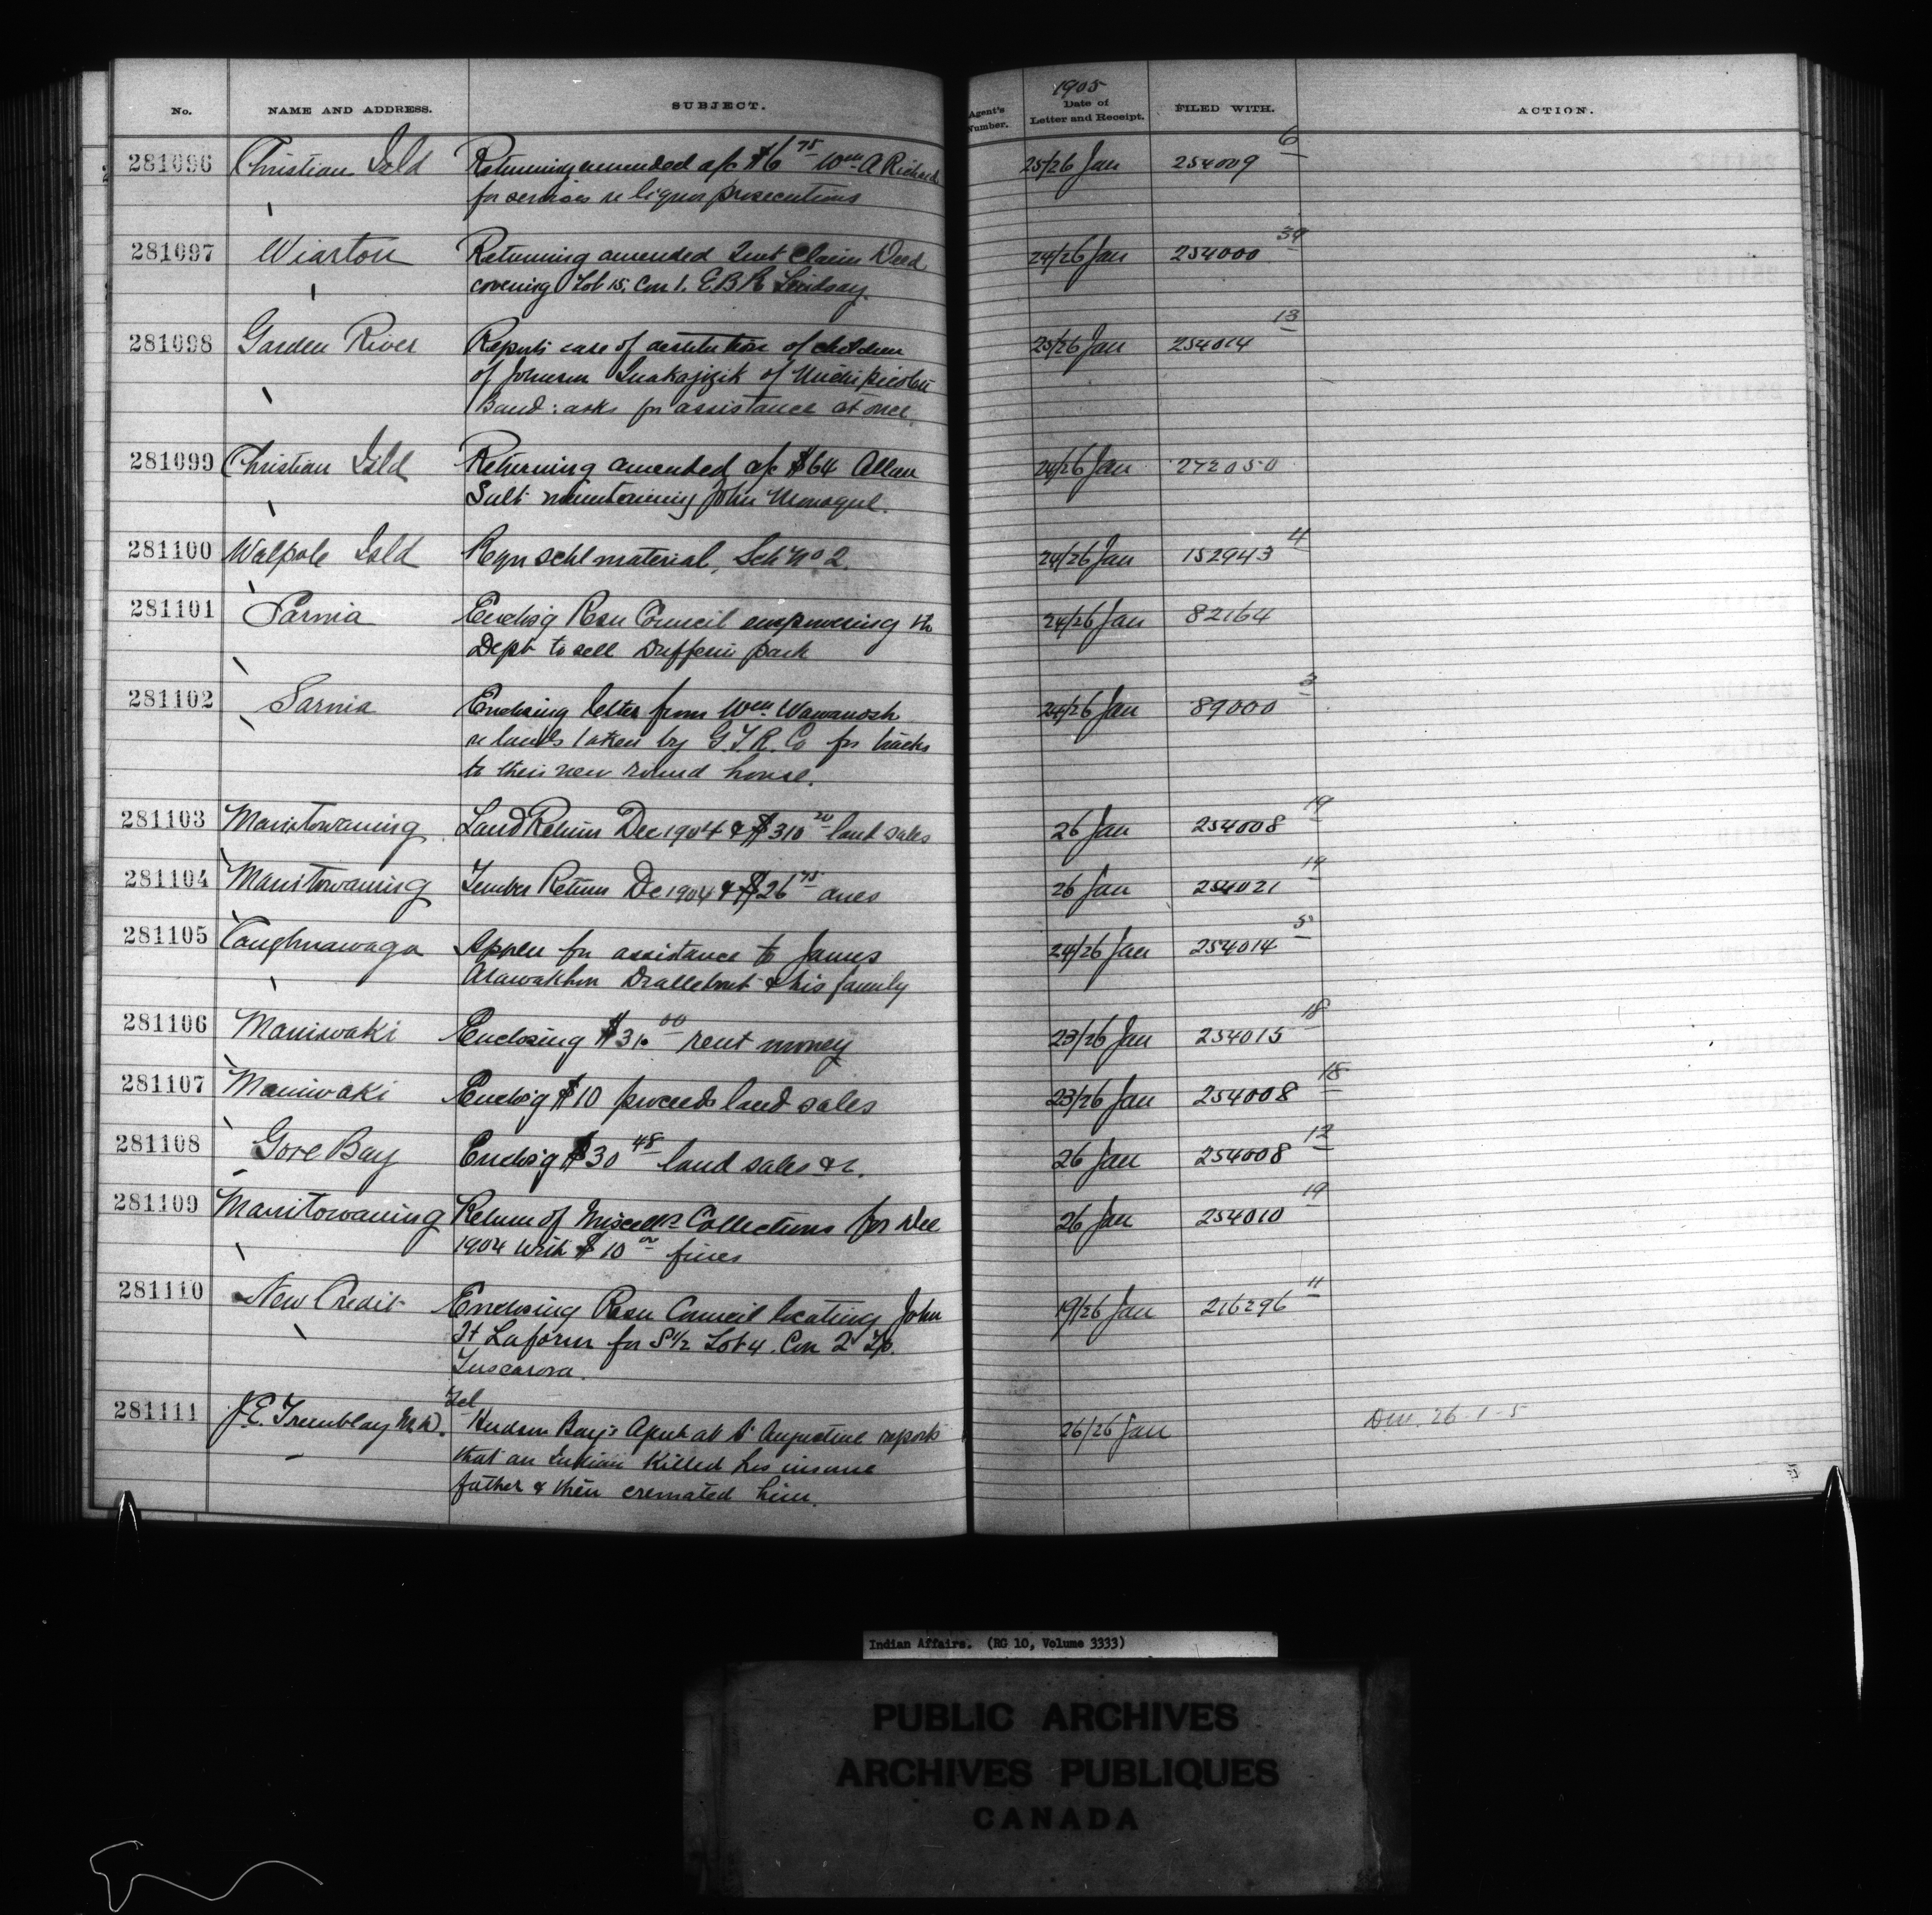 No. NAME AND ADDRESS. SUBJECT. Agent's Number. 1905 Date of Letter and Receipt. FILED WITH. ACTION.
281096 Christian Isld Returning amended a/c $6 75 Wm A Richards 25/26 Jan 254009 6
for services re liquor prosecutions
281097 Wiarton Returning amended Quit Claim Deed 24/26 Jan 254000 39
covering Lot 15. Con 1. E.B.R. Lindsay.
281098 Garden River Reports case of destitution of children 25/26 Jan 254014 13
of Johnson of Michipicoten
Band: asks for assistance at once.
281099 Christian Isld Returning amended a/c $64 Allan 24/26 Jan 272050
Salt maintaining John Monague.
281100 Walpole Isld Reqn schl material, Sch No 2. 24/26 Jan 152943 4
281101 Sarnia Enclos'g Resn Council empowering th 24/26 Jan 82164
Dept to sell Dufferin park
281102 Sarnia Enclosing letter from Wm Wawanosh 24/26 Jan 89000 3
re lands taken by G.T.R. Co for tracks
to their new round house.
281103 Manitowaning Land Return Dec 1904 & $310 20 land sales 26 Jan 254008 19
281104 Manitowaning Timber Return De 1904 & $26 75 dues 26 Jan 254021 19
281105 Caughnawaga Appln for assistance to James 24/26 Jan 254014 5
& his family
281106 Maniwaki Enclosing $31. 00 rent money 23/26 Jan 254015 18
281107 Maniwaki Enclos'g $10 proceeds land sales 23/26 Jan 254008 18
281108 Gore Bay Enclos'g $30 48 land sales &c. 26 Jan 254008 12
281109 Manitowaning Return of Miscells Collections for Dec 26 Jan 254010 19
1904 with $10 00 fines
281110 New Credit Enclosing Resn Council locating John 19/26 Jan 216296 11
H Laform for S 1/2 Lot 4. Con 2 Tp.
Tuscarora.
281111 J.E. Tremblay M.D. Tel
Hudson Bay's Agent at St Augustine reports 26/26 Jan 26-1-5
that an Indian killed his insane
father & then cremated him.
Indian Affairs. (RG 10, Volume 3333)
PUBLIC ARCHIVES
ARCHIVES PUBLIQUES
CANADA